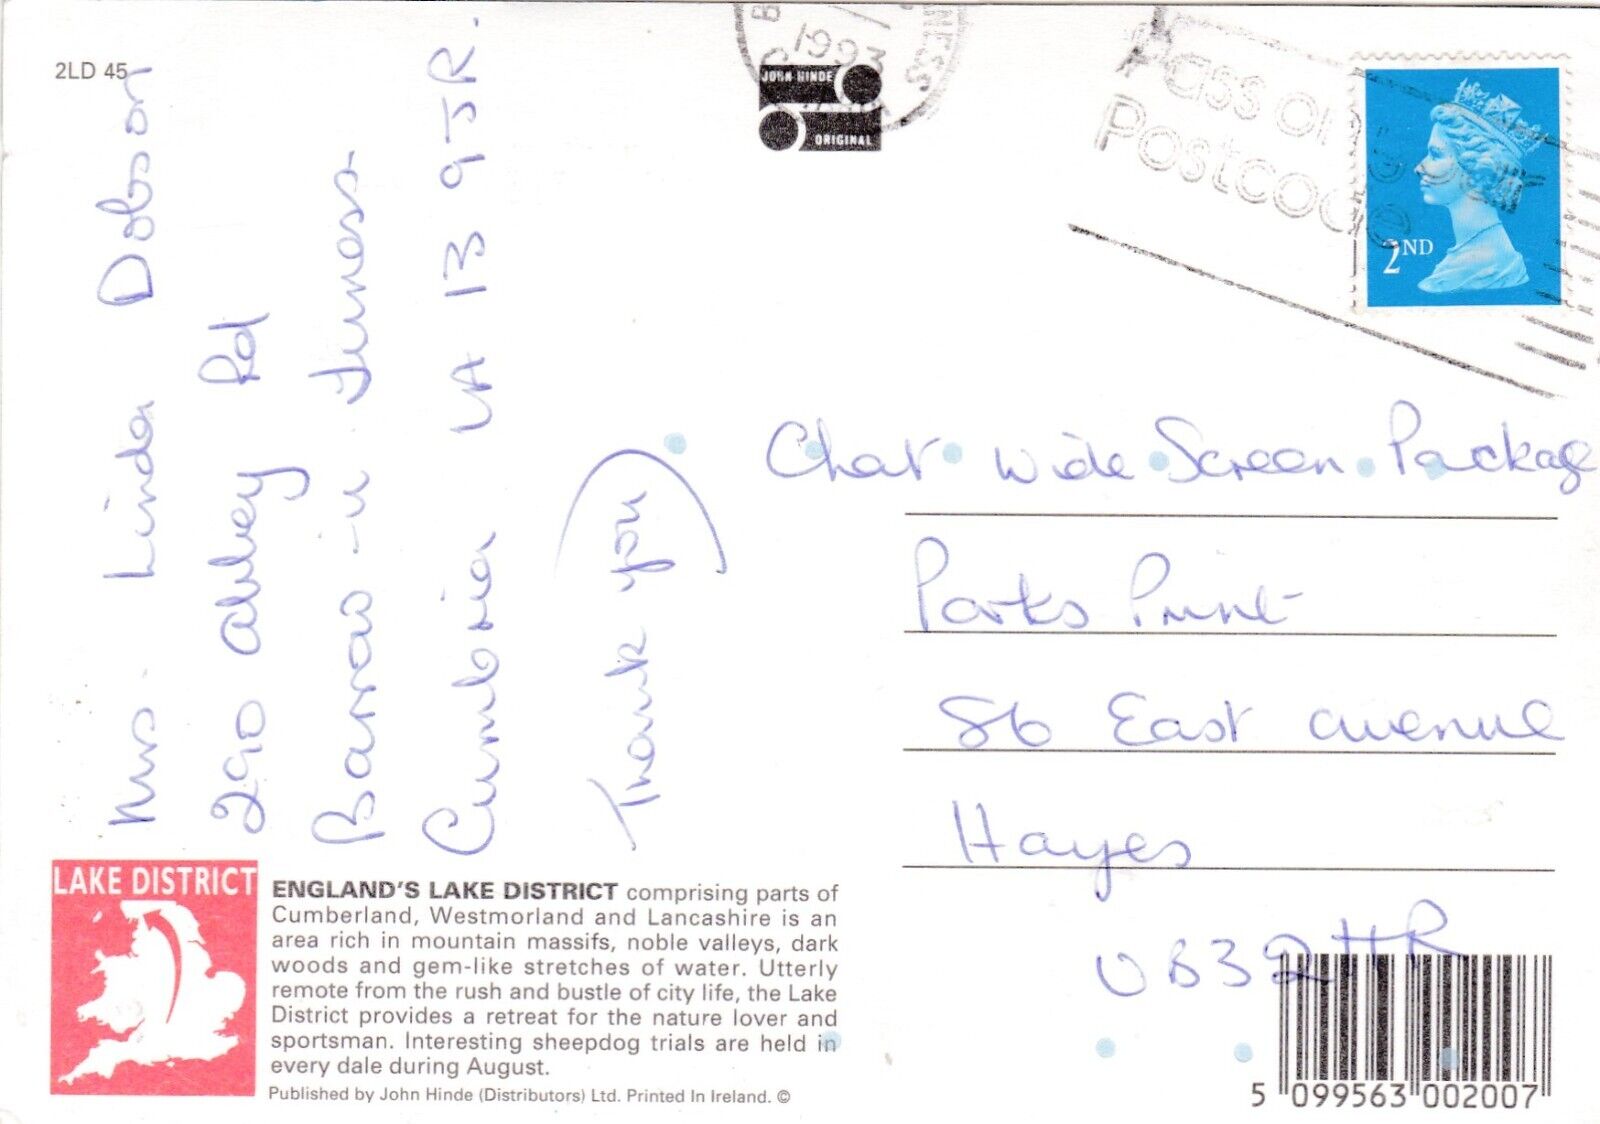 2LD 45
1993
NESS
JOHN HINDE
ORIGINAL
Pass on
Postcode
2ND
Mrs. Linda Dobson
290 Abbey Rd
Barrow-in-Furness
Cumbria LA 13 9JR.
Thank you
Chat Wide Screen Package
Parks Print
86 East Avenue
Hayes
UB3 2HR
LAKE DISTRICT
ENGLAND'S LAKE DISTRICT comprising parts of
Cumberland, Westmorland and Lancashire is an
area rich in mountain massifs, noble valleys, dark
woods and gem-like stretches of water. Utterly
remote from the rush and bustle of city life, the Lake
District provides a retreat for the nature lover and
sportsman. Interesting sheepdog trials are held in
every dale during August.
Published by John Hinde (Distributors) Ltd. Printed In Ireland. ©
5 099563 002007